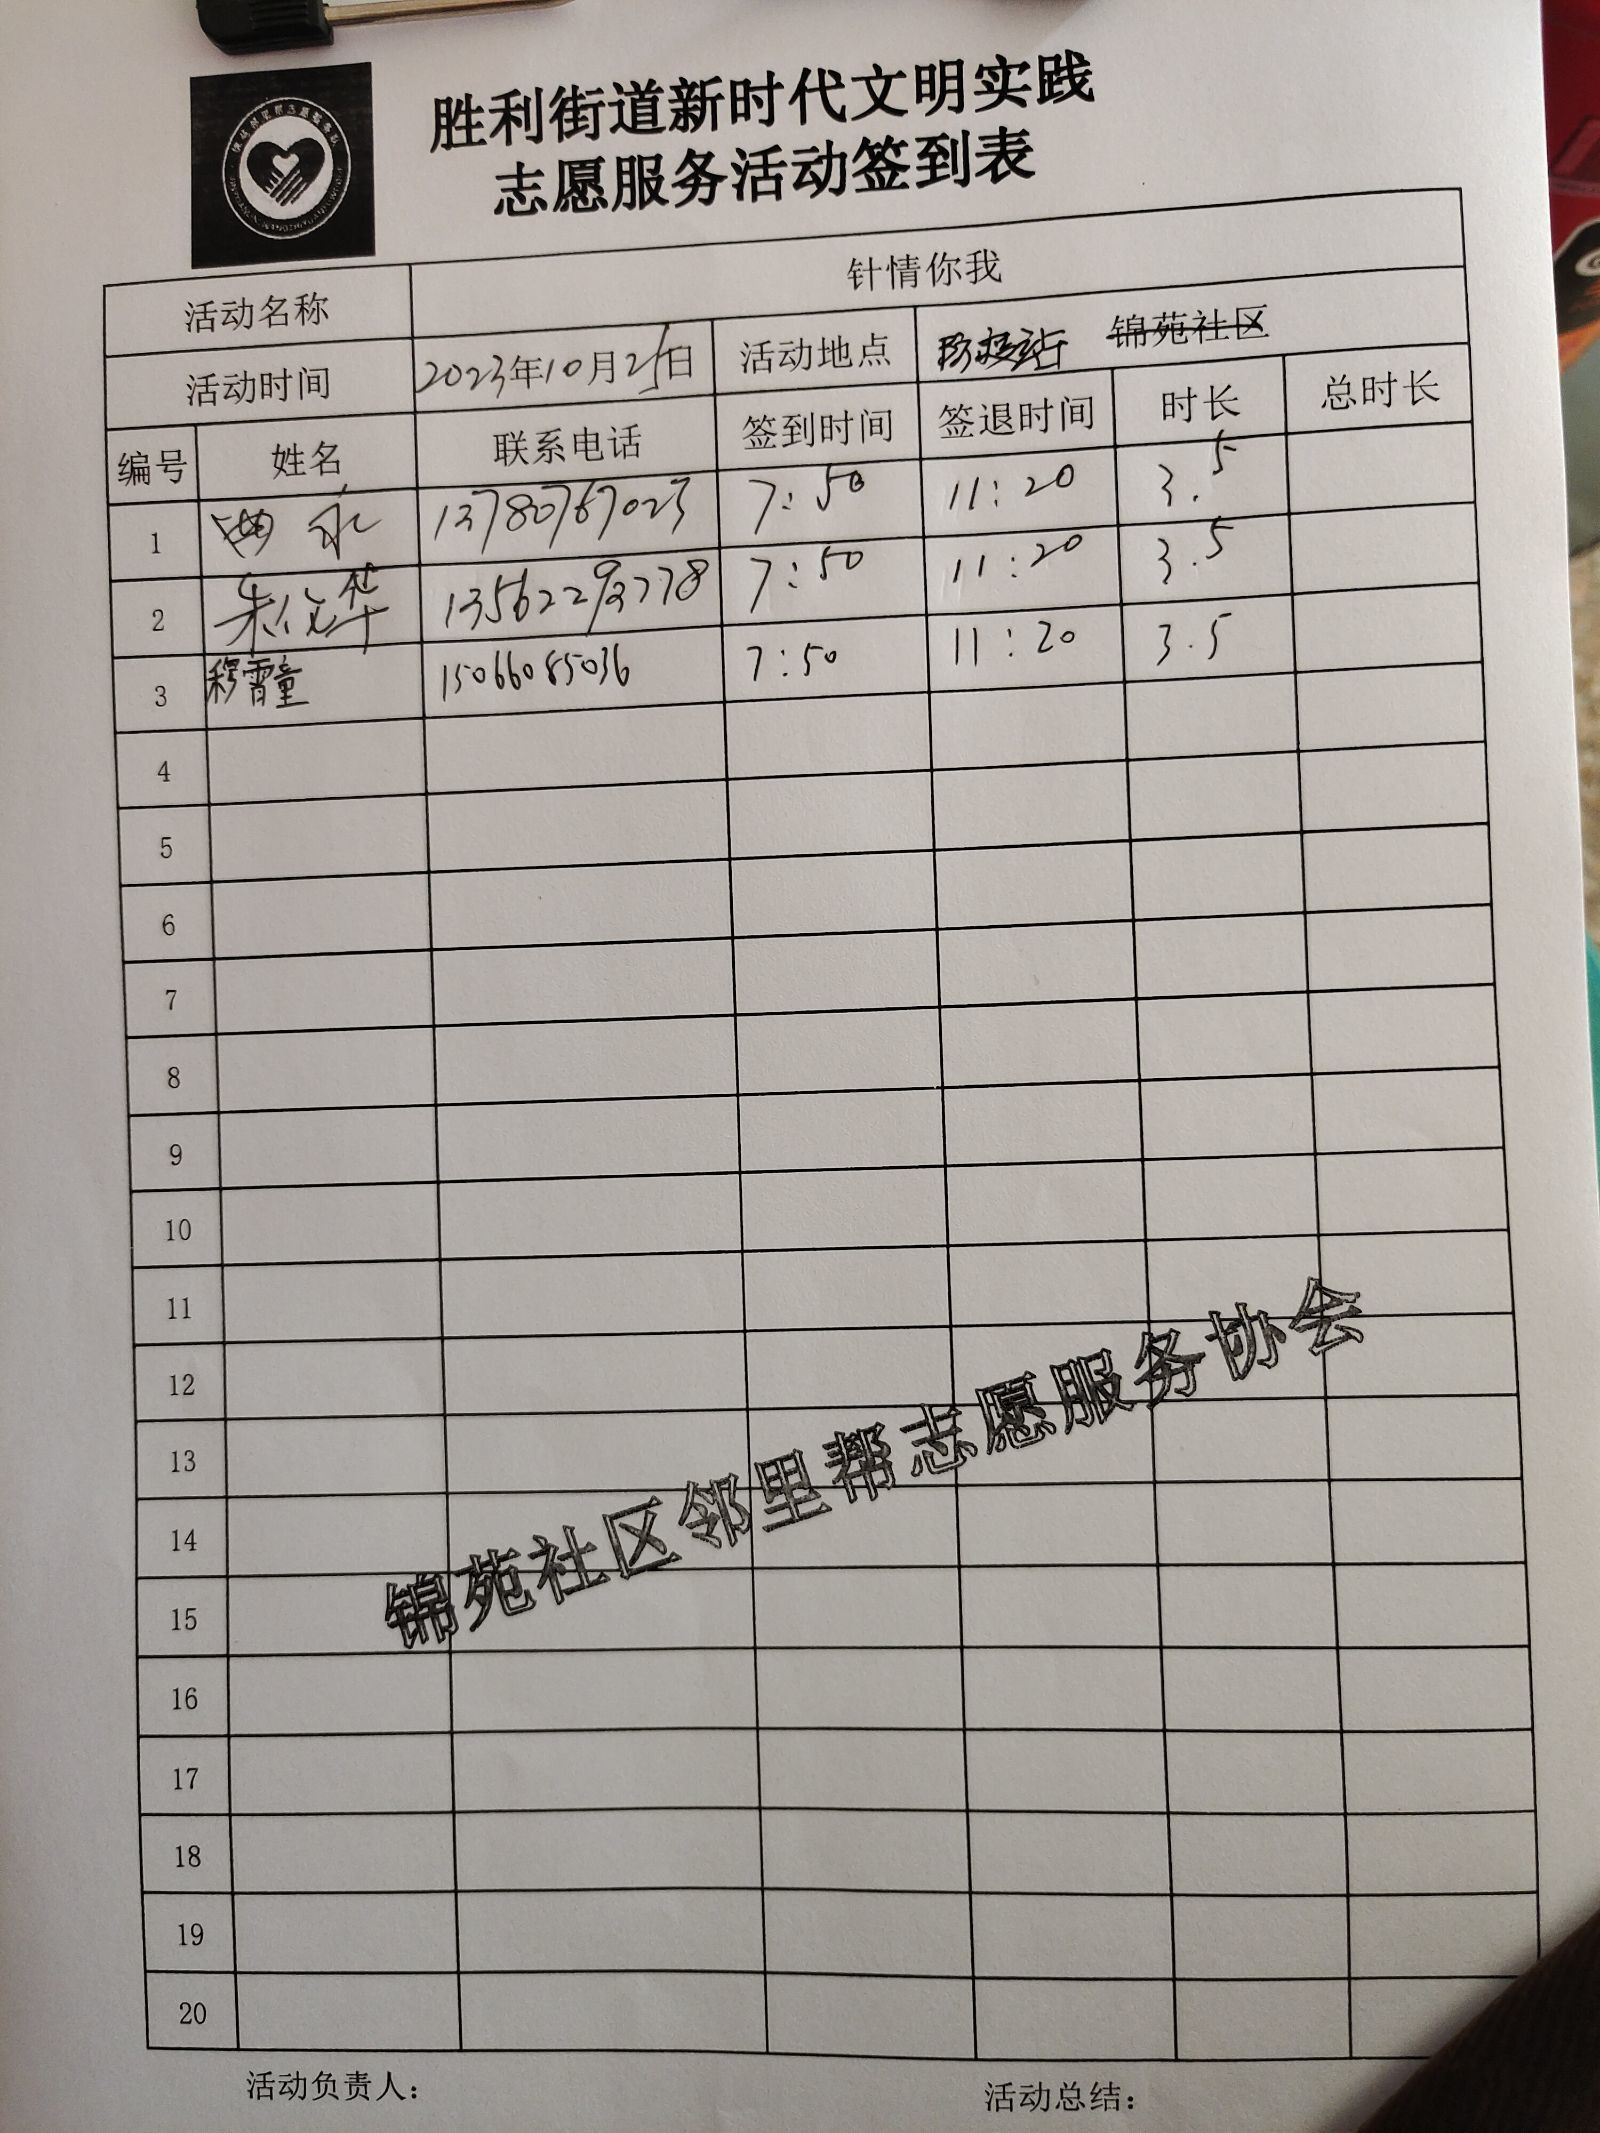 胜利街道新时代文明实践
志愿服务活动签到表
活动名称 针情你我
活动时间 2023年10月25日 活动地点 防疫站 锦苑社区
编号 姓名 联系电话 签到时间 签退时间 时长 总时长
1 曲永 13780767023 7:50 11:20 3.5
2 朱俊华 13562293778 7:50 11:20 3.5
3 穆霄童 15066085036 7:50 11:20 3.5
4
5
6
7
8
9
10
11
12
13
14
15
16
17
18
19
20
锦苑社区邻里帮志愿服务协会
活动负责人：
活动总结：